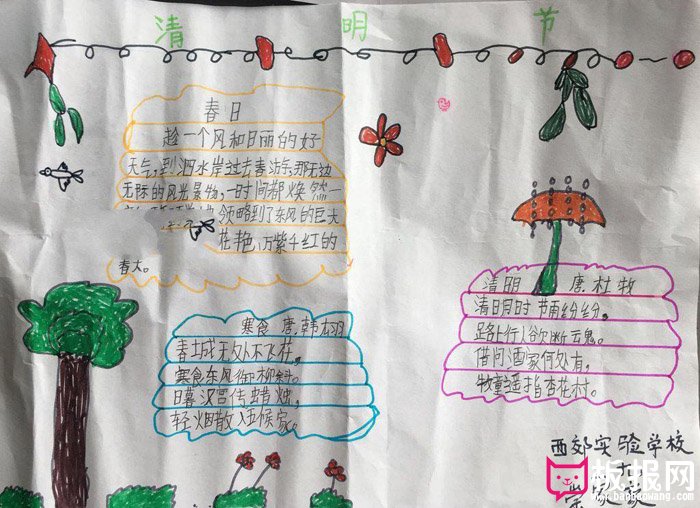 清 明 节
春日
趁一个风和日丽的好
天气,到泗水岸过去春游,那无边
无际的风光景物,一时间都焕然一
领略到了东风的巨大
花艳,万紫千红的
春天。
寒食 唐.韩
春城无处不飞花,
寒食东风御柳斜。
日暮汉宫传蜡烛,
轻烟散入五候家。
清明 唐.杜牧
清明时节雨纷纷,
路上行人欲断魂。
借问酒家何处有,
牧童遥指杏花村。
西郊实验学校
板报网
www.banbaowang.com